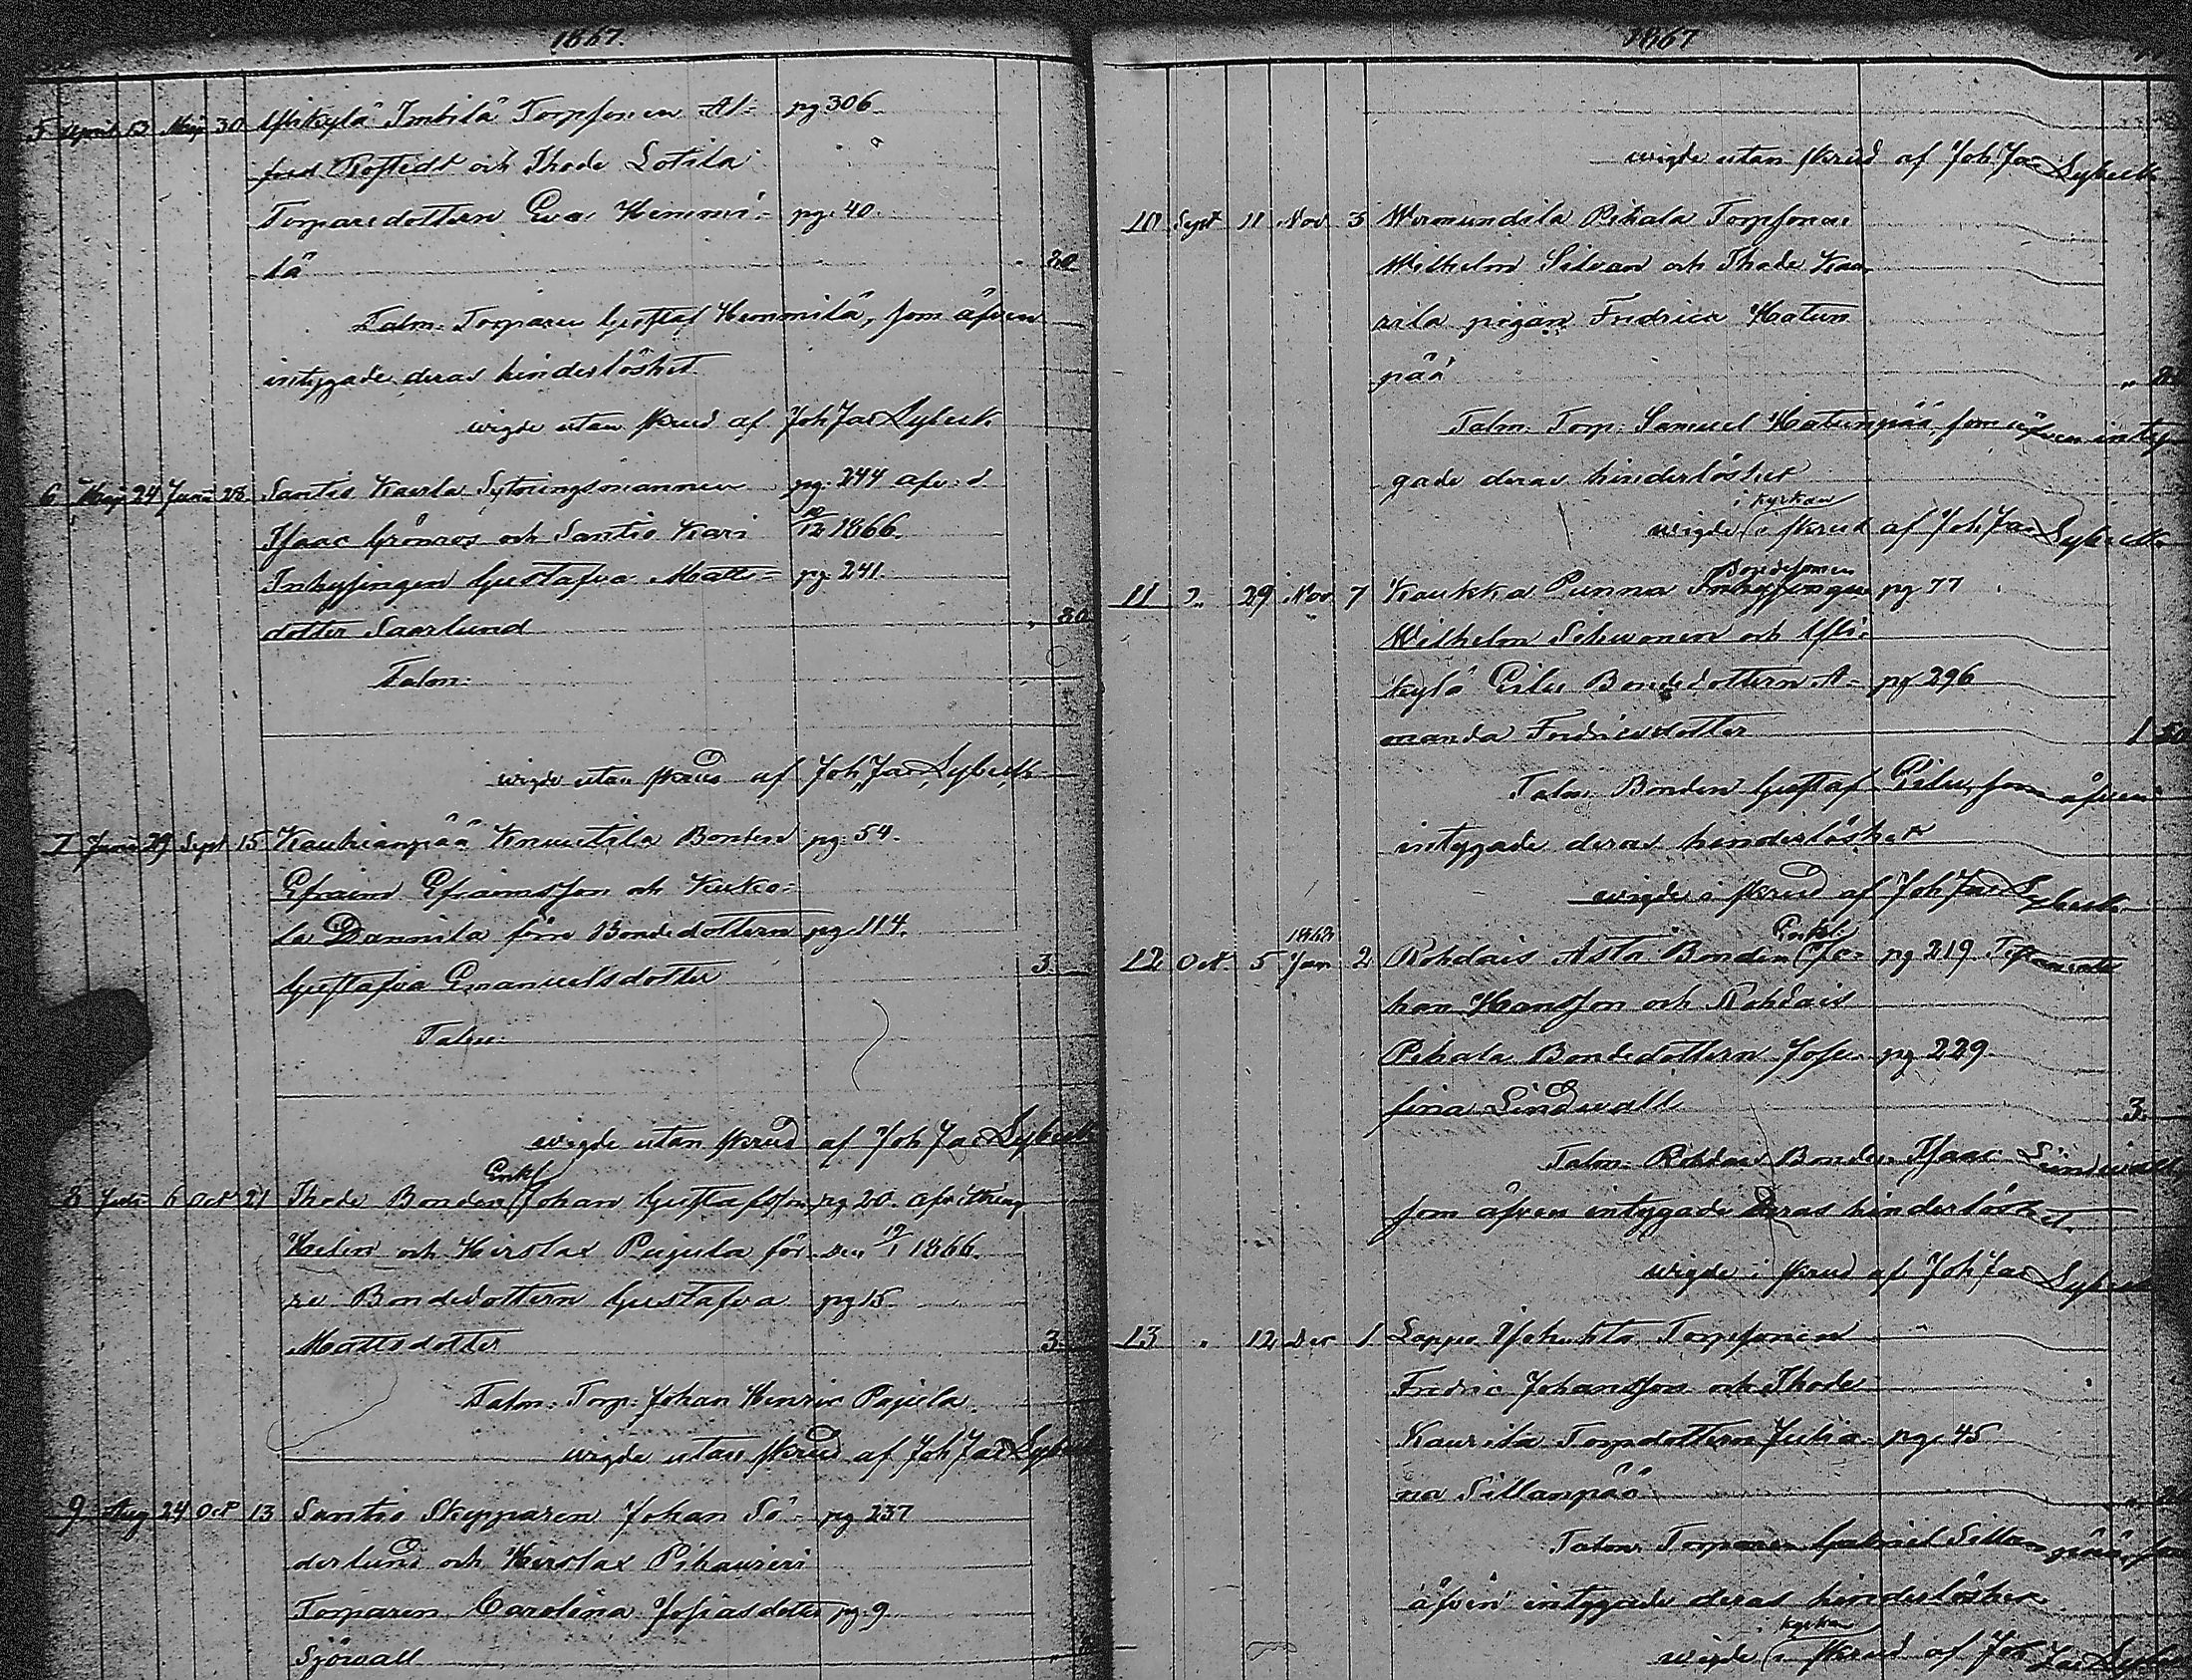 1867.
5 April 13 Maj 30 Ylikylä Imbilä Torpsonen Al= pg 306.
fred Rostedt och Thode Lotila
Torparedottern Eva Hemmi= pg. 40.
lä 80
Talm: Torparen Gustaf Hemmilä, som äfven
intygade deras hinderlöshet
wigde utan skrud af Joh Jac Lybeck.
6 Maj 24 Junii 28 Santio Kaarla Sytningsmannen pg. 244
Isaac Grönros och Santio Kari 1866.
Inhysingen Gustafva Matts= pg. 241.
dotter Saarlund 80
Talm:
wigde utan skrud af Joh Jac Lybeck
7 Junii 29 Sept 15 Kauhianpää Knuutila Bonden pg. 54.
Efraim Efraimsson och Kirko=
la Dannila förre Bondedottern pg. 114.
Gustafva Emanuelsdotter 3
Talm:
wigde utan skrud af Joh Jac Lybeck
Enkl
8 6 Oct 21 Thode Bonden Johan Gustafsson pg 20. afvittring
Helin och Hirslax Pajula för= den 1866.
re Bondedottern Gustafva pg 15
Mattsdotter 3
Talm: Torp: Johan Henric Pajula.
wigde utan skrud af Joh Jac Lybeck
9 Aug 24 Oct 13 Santio Skepparen Johan Sö= pg 237
derlund och Hirslax Pihaureri
Torparen Carolina Josiasdotter pg. 9
Sjöwall
1867
wigde utan skrud af Joh Jac Lybeck
10 Sept 11 Nov 3 Wermundila Pihala Torpsonen
Wilhelm Silvan och Thode Kau=
rila pigan Fredrica Hatun
pää 80
Talm: Torp: Samuel Hatunpää, som äfven inty
gade deras hinderlöshet
i kyrkan
wigde i skrud af Joh Jac Lybeck
Bondesonen
11 " 29 Nov 7 Kaukka Punna Inhysingen pg 77
Wilhelm Silwonen och Yli=
kylä Eilu Bondedottern A= pg 296
manda Fredricsdotter 1 50
Talm: Bonden Gustaf Eilu, som äfven
intygade deras hinderlöshet
wigde i skrud af Joh Jac Lybeck
1868 Enkl:
12 Oct. 5 Jan 2 Rohdais Asta Bonden Jo= pg 219. Testamente
han Hansson och Rohdais
Pihala Bondedottern Jose= pg 229
fina Lindwall 3.
Talm: Rohdais Bonden Isaac Lindwall
som äfven intygade deras hinderlöshet.
wigde i skrud af Joh Jac Lybeck
13 " 12 Dec 1 Lappi Torpsonen
Fredric Johansson och Thode
Kaurila Torpdottern Julia= pg. 45
na Sillanpää
Talm: Torparen Gabriel Sillanpää, som
äfven intygade deras hinderlöshet
kyrkan
wigde i skrud af Joh Jac Lybeck